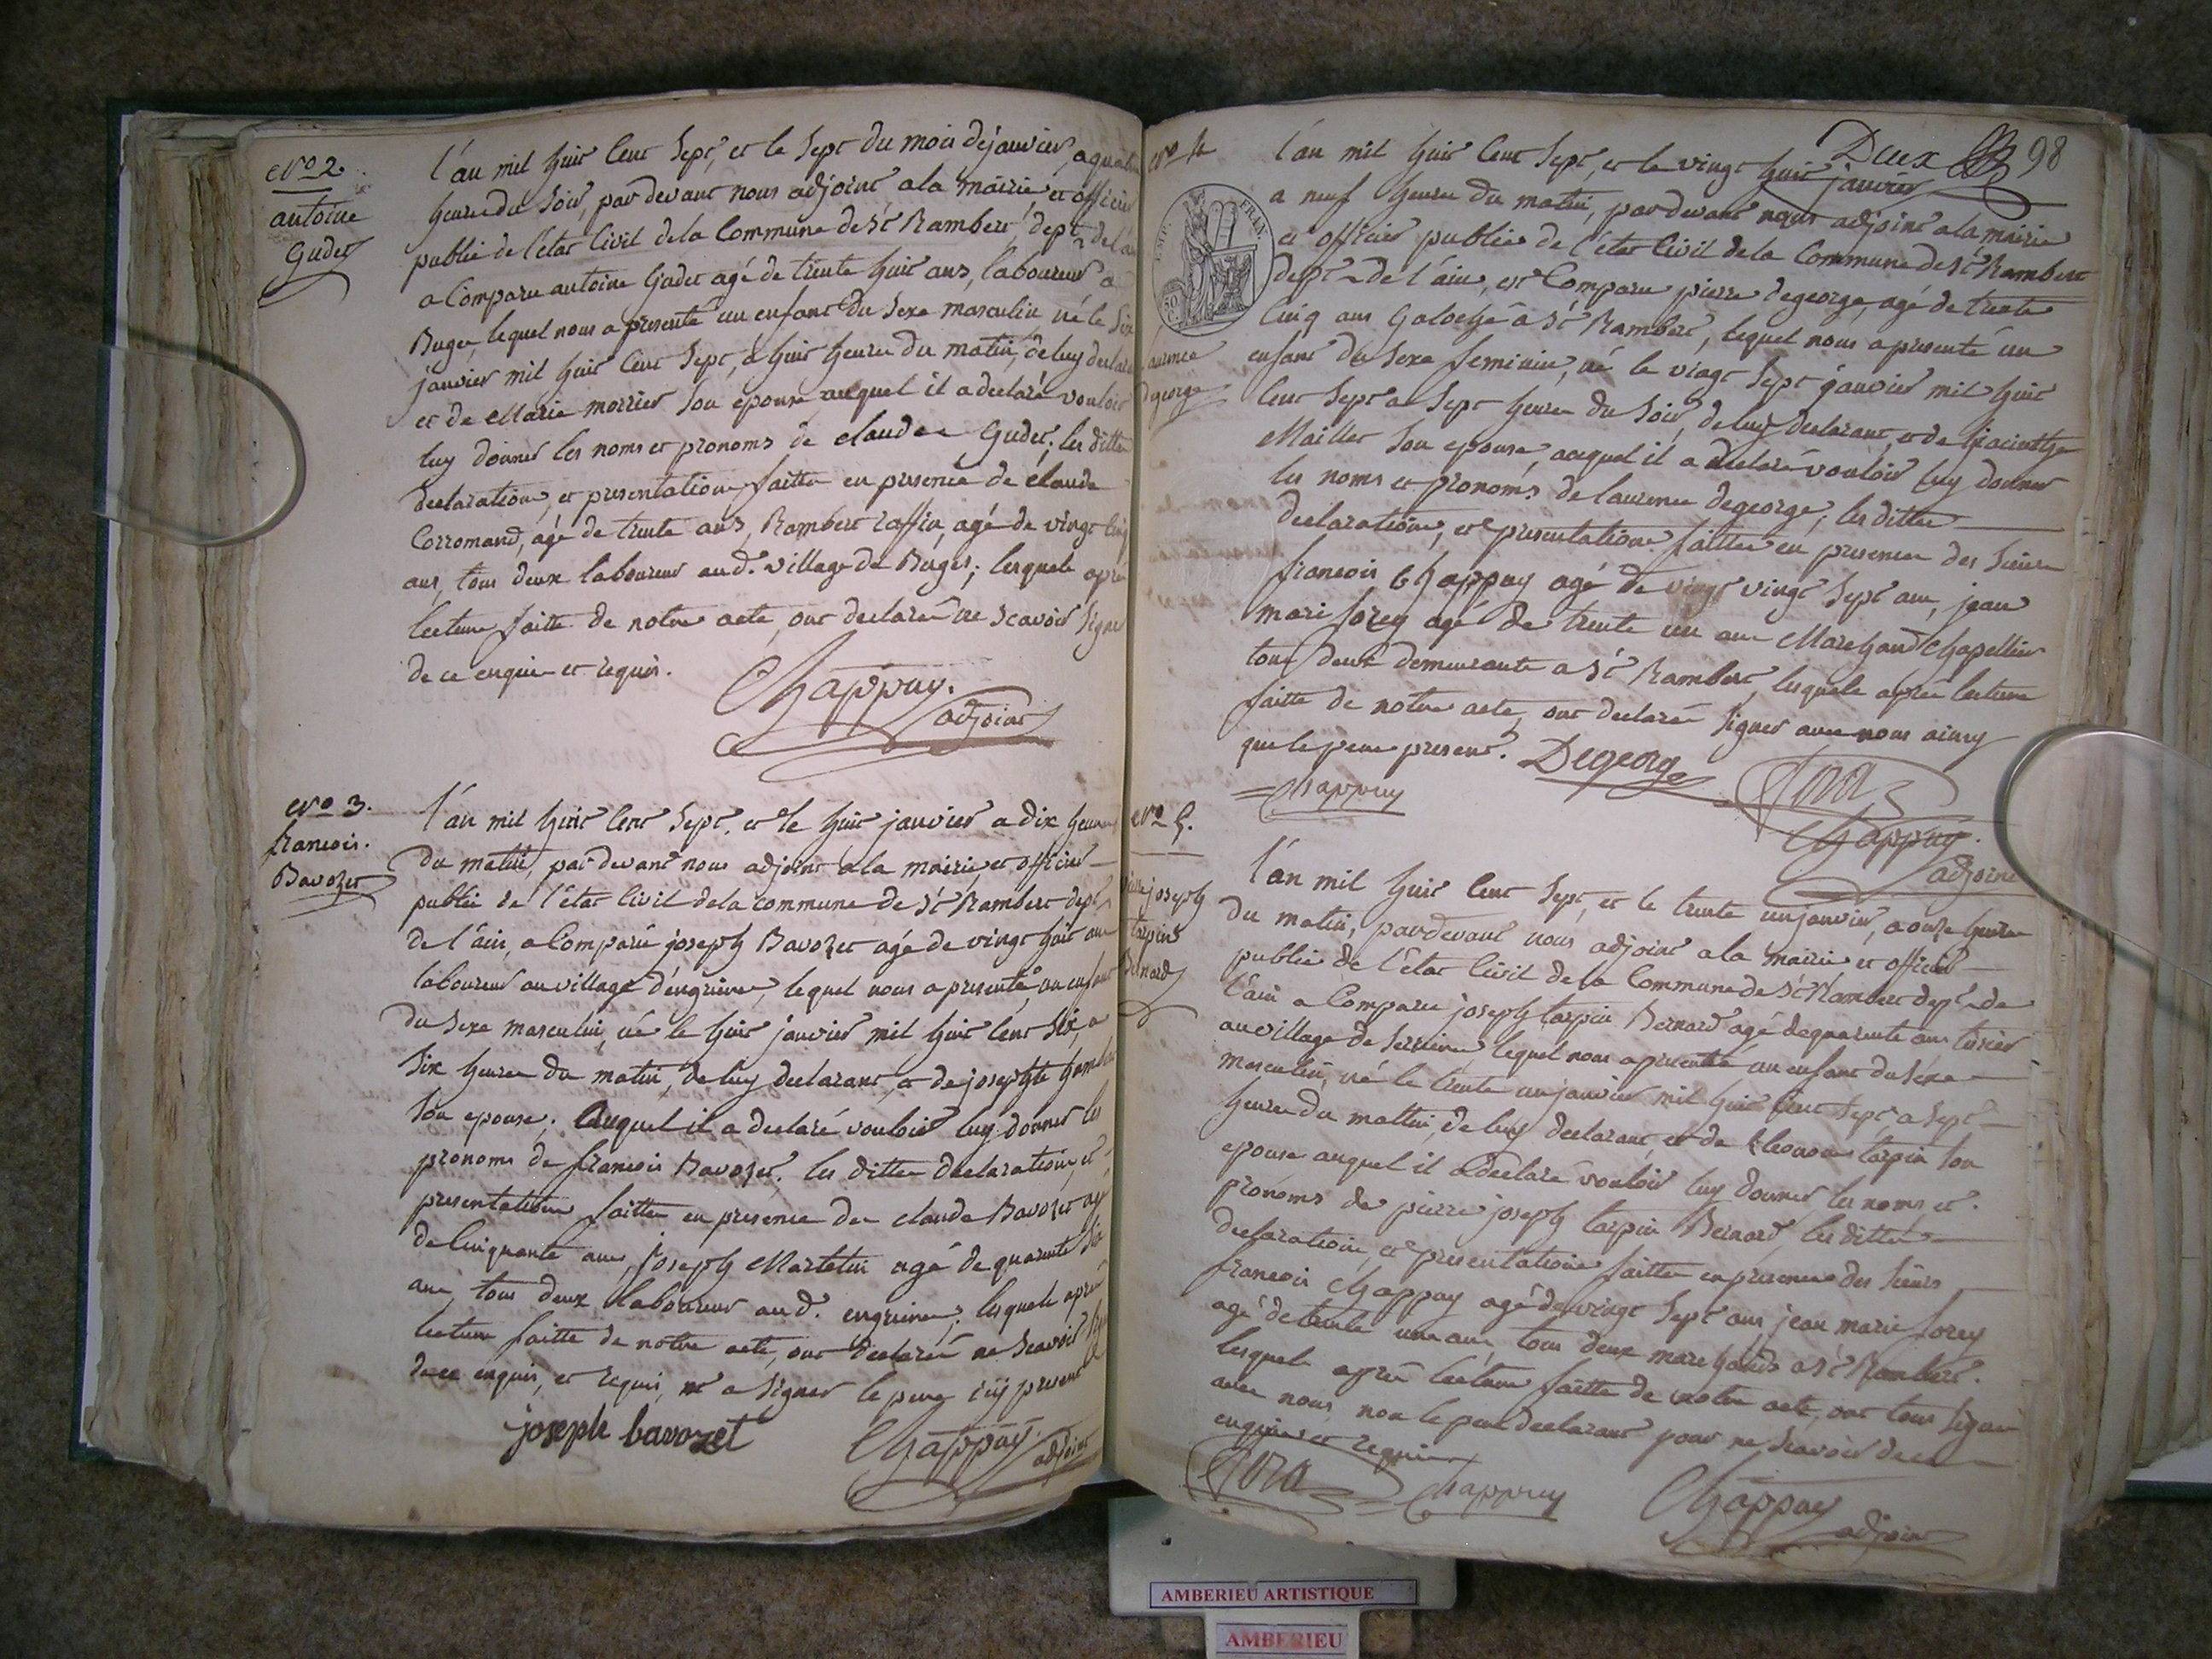 No 2.
antoine
Gudet
L'an mil huit cent sept, et le sept du mois de janvier, a quatre
heures du soir, par devant nous adjoint a la mairie, et officier
public de l'état civil de la commune de St Rambert, dept de l'ain
a comparu antoine Gudet agé de trente huit ans, laboureur a
Buges, lequel nous a presenté un enfant du sexe masculin né le six
janvier mil huit cent sept, a huit heures du matin, de luy declarant
et de Marie morrier son epouse auquel il a declaré vouloir
luy donner les noms et pronoms de claude Gudet; les dittes
declaration, et presentation faittes en presence de claude
Corromand, agé de trente ans, Rambert raffin, agé de vingt cinq
ans, tous deux laboureur aud. village de Buges; lesquels après
lecture faitte de notre acte, ont declaré ne scavoir signer
de ce enquis et requis.
Chappuy.
adjoint
No 3.
francois.
Bavozet
L'an mil huit cent sept, et le huit janvier a dix heures
du matin, par devant nous adjoint a la mairie, et officier
public de l'état civil de la commune de St Rambert dept
de l'ain, a comparu joseph Bavozet agé de vingt huit ans
laboureur au village d'enguines, lequel nous a presenté, un enfant
du sexe masculin, né le huit janvier mil huit cent six, a
six heures du matin, de luy declarant, et de josephte
son epouse; auquel il a declaré vouloir luy donner les
pronoms de francois Bavozet, les dittes declaration, et
presentation faittes en presence de claude Bavozet agé
de cinquante ans, joseph Martetin agé de quarante six
ans, tous deux laboureur aud. enguines; lesquels après
lecture faitte de notre acte, ont declaré ne scavoir signer
de ce enquis, et requis, et a signer le pere icy present
joseph bavozet
Chappuy.
adjoint
Deux 98
No 4
EMP. FRAN.
50 C.
laurence
degeorge
L'an mil huit cent sept, et le vingt huit janvier
a neuf heures du matin, pardevant nous adjoint a la mairie
et officier public de l'état civil de la commune de St Rambert
dept de l'ain, est comparu pierre degeorge, agé de trente
cinq ans Galoché a St Rambert, lequel nous a presenté un
enfant du sexe feminin, né le vingt sept janvier mil huit
cent sept a sept heures du soir, de luy declarant, et de hiacinthe
Maillet son epouse, auquel il a declaré vouloir luy donner
les noms et pronoms de laurence degeorge; les dittes
declaration, et presentation faittes en presence des sieurs
francois Chappuy agé de vingt vingt sept ans, jean
marie forey agé de trente un ans Marchand Chapellier
tous deux demeurants a St Rambert, lesquels après lecture
faitte de notre acte, ont declaré signer avec nous ainsy
que le pere present.
Degeorge
Chappuy
Chappuy.
adjoint
No 5.
joseph
tarpin
Bernard
L'an mil huit cent sept, et le trente un janvier, a onze heures
du matin, pardevant nous adjoint a la mairie et officier
public de l'état civil de la commune de St Rambert dept de
l'ain a comparu joseph tarpin Bernard agé de quarante ans tixier
au village de serrieres lequel nous a presenté un enfant du sexe
masculin, né le trente un janvier mil huit cent sept, a sept
heures du mattin, de luy declarant, et de tarpin son
epouse auquel il a declaré vouloir luy donner les noms et
pronoms de pierre joseph tarpin Bernard, les dittes
declaration, et presentation faittes en presence des sieurs
francois Chappuy agé de vingt sept ans, jean marie forey
agé de trente un ans, tous deux marchands a St Rambert.
lesquels après lecture faitte de notre acte, ont tous signer
avec nous, non le pere declarant pour ne scavoir de ce
enquis et requis
Chappuy
Chappuy
adjoint
AMBERIEU ARTISTIQUE
AMBERIEU